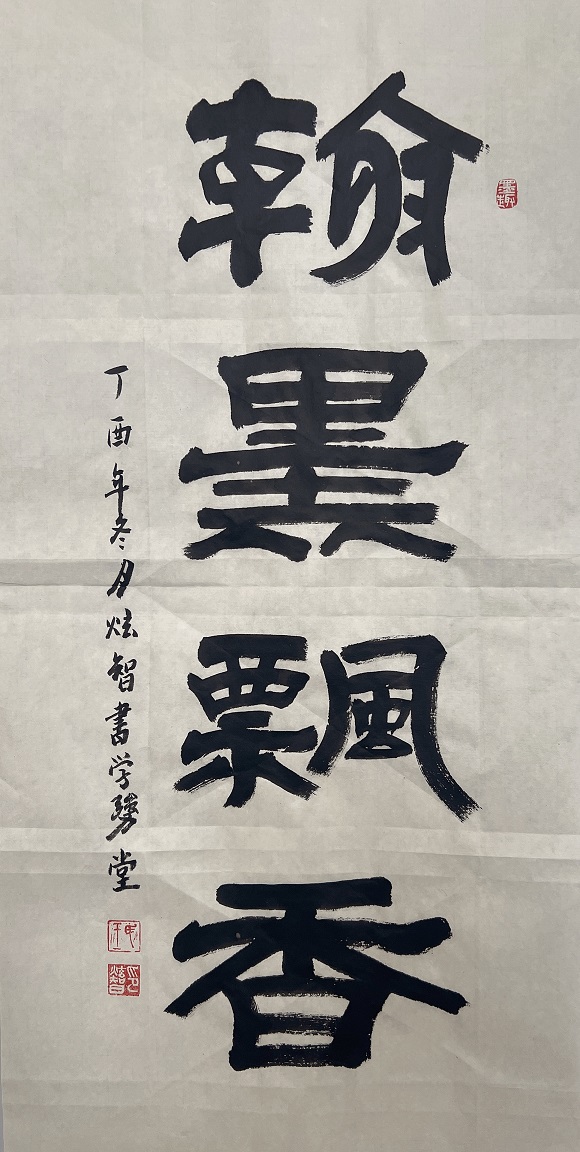 翰墨飘香
丁酉年冬月炫智書学勝堂